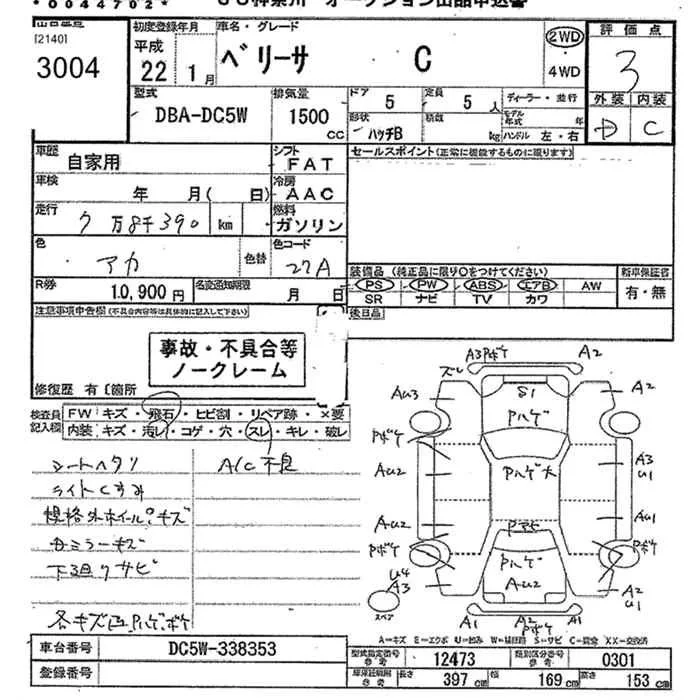 *0044702*
オークション出品申込書
[2140]
3004
初度登録年月
平成
22 1月
車名・グレード
ベリーサ C
2WD
4WD
評価点
3
外装 内装
D C
型式
DBA-DC5W
排気量
1500 CC
ドア 5
定員 5 人
形状 ハッチB
積載 kg
ディーラー・並行
モデル年式 年
ハンドル 左・右
車歴
自家用
シフト
FAT
セールスポイント(正常に機能するものに限ります)
車検
年 月( 日)
冷房
AAC
走行
7万8千390 km
燃料
ガソリン
色
アカ
色替
色コード
27A
装備品 (純正品に限り○をつけてください)
PS PW ABS エアB AW
SR ナビ TV カワ
新車保証書
有・無
R券
10,900円
名変通知期限
月 日
後日品
注意事項申告欄(不具合内容等は具体的に記入して下さい)
事故・不具合等
ノークレーム
修復歴 有 〔箇所
検査員
記入欄
FW キズ・飛石・ヒビ割・リペア跡・×要
内装 キズ・汚レ・コゲ・穴・スレ・キレ・破レ
シートヘタリ
A/C不良
ライトくすみ
規格外ホイール?キズ
下回りサビ
各キズ凹、Pハゲ、ボケ
A3 Pボケ A2
ズレ
S1
AU3
A2
Pハゲ
Pボケ
AU2
Pハゲ大
A3
U1
AU2
AU1
Pボケ
Pボケ
Pハゲ
AU2
U4
A3
A2
U1
スペア
A1 A2 A1
Pボケ
A=キズ E=エクボ U=凹み W=補修跡 S=サビ C=腐食 XX=交換済
車台番号
DC5W-338353
登録番号
型式指定番号
参考
12473
類別区分番号
参考
0301
長さ 397 cm
幅 169 cm
高さ 153 cm